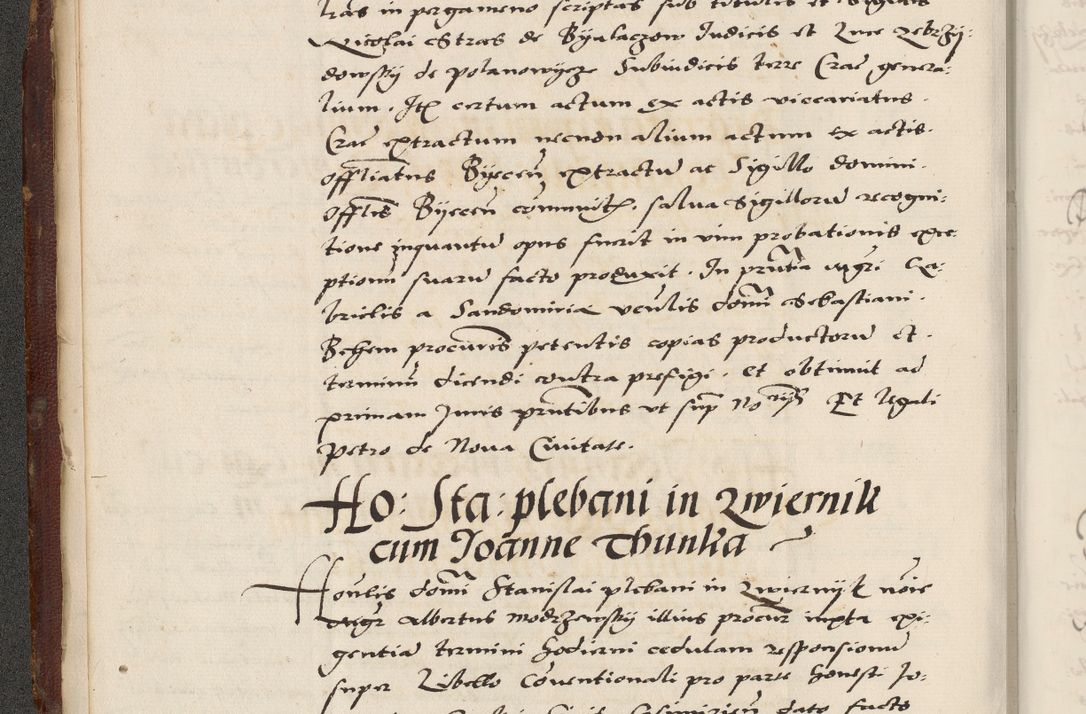 tras in pergameno scriptas sub titulis et Sigillis
Nicolai Stras de Byalaczow Iudicis et Luce Zebrzy:
dowsky de polanowycze Subiudicis terre Crae genera:
lium. Itē certum actum ex actis viccariatus.
Crae extractum necnon alium actum Ex actis.
offlīatus Byeceñ extractū ac Sigillo domini.
offlīs Byeceñ cōmunitū. salua Sigillorū recogni:
tione inquantū opus fuerit in vim probationis exce:
ptionū suarū facto produxit. In prn̄tia mgr̄i Ga:
brielis a Sandomiria ven̄lis dom̄i Sebastiani.
Behem procur̄is petentis copias productorū et.
terminū dicendi contra prefigi. Et obtinuit ad
primam Juris prn̄tibus vt sup̄ No rijs Et legali
Petro de Noua Ciuitate.
Ho: Sta: plebani in Zwiernik
cum Joanne Thunka
Hon̄lis dom̄i Stanislai plebani in Zwiernyk nōie
mgr̄ Albertus Modrzewsky illius procur̄ iuxta exi:
gentiā termini hodierni cedulam responsionū
super Libello Conuentionali pro parte honesti Jo:
dato facto